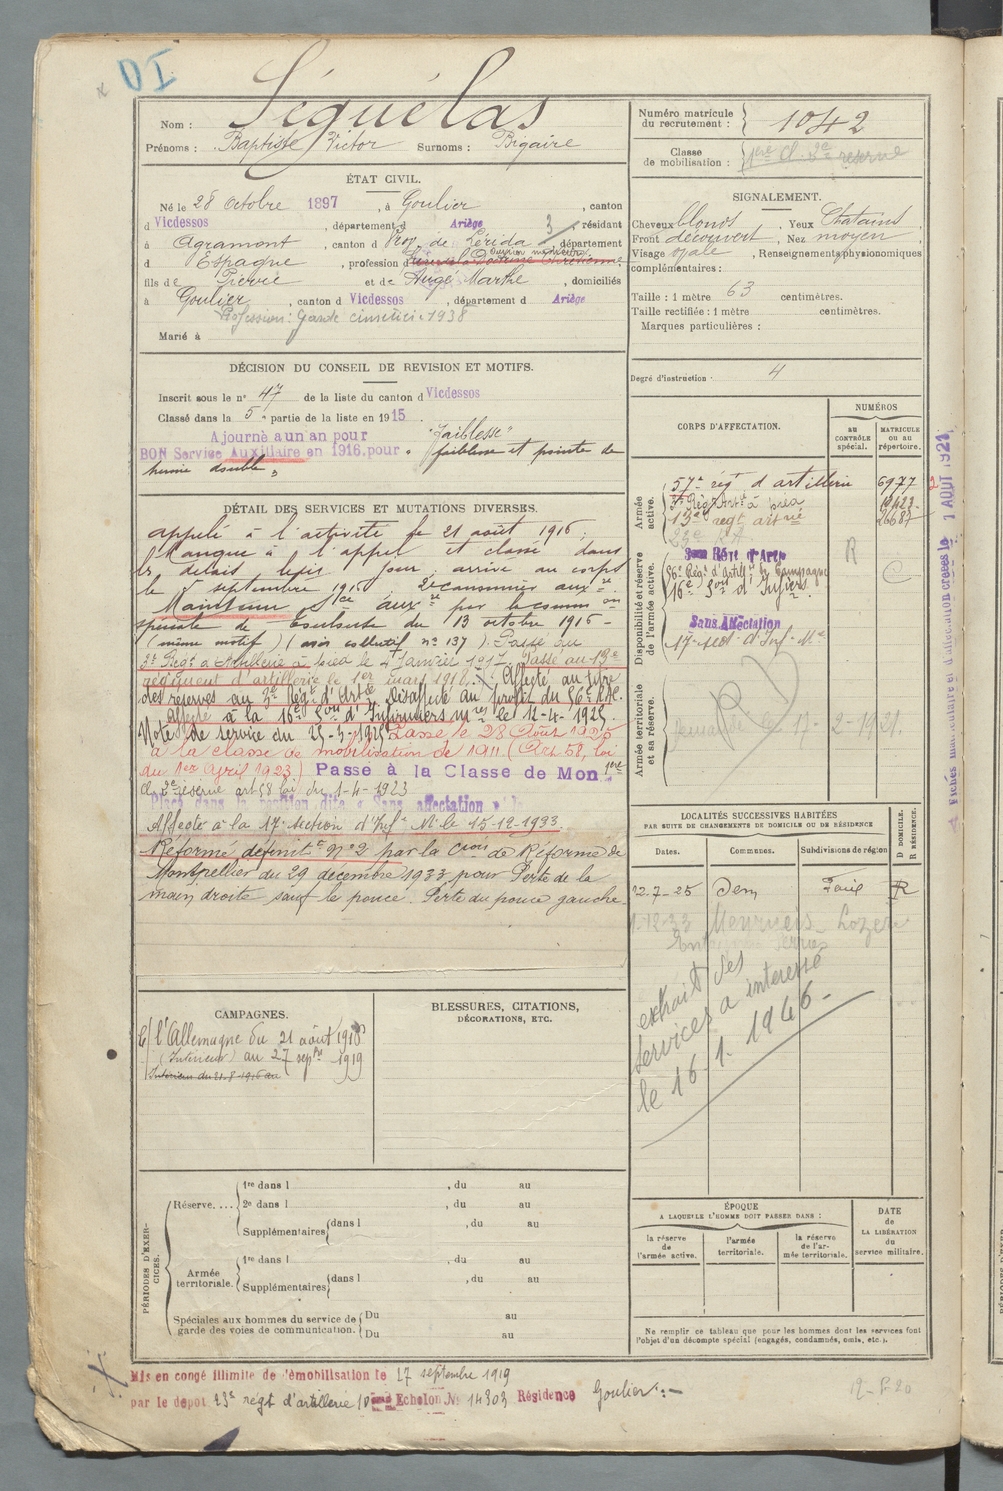 Nom : Séguélas
Prénoms : Baptiste Victor Surnoms : Bigaire
ÉTAT CIVIL.
Né le 28 octobre 1897, à Goulier, canton
d Vicdessos, département d Ariège, résidant
à Agramont, canton d Prov. de Lérida, département
d Espagne, profession d
fils de Pierre et de Augé Marthe, domiciliés
à Goulier, canton d Vicdessos, département d Ariège
Profession : Garde cimetière 1938
Marié à
DÉCISION DU CONSEIL DE REVISION ET MOTIFS.
Inscrit sous le n° 47 de la liste du canton d Vicdessos
Classé dans la 5e partie de la liste en 1915
Ajourné a un an pour "Faiblesse"
BON Service Auxiliaire en 1916.pour " faiblesse et pointe de
hernie double "
DÉTAIL DES SERVICES ET MUTATIONS DIVERSES.
appelé à l'activité le 21 août 1916 ;
Manque à l'appel et classé dans
les délais arrivé au corps
le 5 septembre 1916 2e canonnier auxre
Maintenu Sce auxre par la comm on
spéciale de Toulouse du 13 octobre 1916 -
(même motif) (avis collectif n° 137). Passé au
3e Régt d'Artillerie à pied le 4 Janvier 1917. Passé au 13e
régiment d'artillerie le 1er mars 1918. Affecté au titre
des réserves au 3e Régt d'Artie. Réaffecté au profit du 56e R.A.C.
Affecté à la 16e Son d'Infirmiers mres le 12-4-1925.
Note de service du 25-3-1925 Passé le 28 Août 1925
à la classe de mobilisation de 1911 (Art. 58, loi
du 1er Avril 1923) Passé à la Classe de Mon 1ère
Cl. 2e réserve art 58 loi du 1-4-1923
Placé dans la position dite « Sans affectation »
Affecté à la 17e section d'Infres Mres le 15-12-1933
Réformé définitif n° 2 par la Cion de Réforme de
Montpellier du 29 décembre 1933 pour Perte de la
main droite sauf le pouce. Perte du pouce gauche.
CAMPAGNES.
C/ l'Allemagne du 21 août 1916
(Intérieur) au 27 septbre 1919
Intérieur du 21-8-1916 au
BLESSURES, CITATIONS,
DÉCORATIONS, ETC.
PÉRIODES D'EXERCICES.
Réserve....
1re dans l , du au
2e dans l , du au
Supplémentaires dans l , du au
Armée territoriale.
1re dans l , du au
Supplémentaires dans l , du au
Spéciales aux hommes du service de
garde des voies de communication.
Du au
Du au
Mis en congé illimité de démobilisation le 17 septembre 1919
par le dépot 23e régt d'artillerie Echelon N° 14303 Résidence Goulier
Numéro matricule
du recrutement : 1042
Classe
de mobilisation : 1ère Cl. 2e réserve
SIGNALEMENT.
Cheveux blonds Yeux Chatains
Front découvert, Nez moyen
Visage ovale, Renseignements physionomiques
complémentaires :
Taille : 1 mètre 63 centimètres.
Taille rectifiée : 1 mètre centimètres.
Marques particulières :
Degré d'instruction : 4
CORPS D'AFFECTATION.
NUMÉROS
AU CONTRÔLE spécial.
MATRICULE OU AU répertoire.
Armée active.
57e régt d'artillerie 6977
3e Régt Artie à pied
13e regt artrie 26687
23e R.A.
Disponibilité et réserve
de l'armée active.
3me Régt d'Artie R
56e Régt d'Artillie de Campagne
16e Son d'Infiers.
Sans Affectation
17e sect. d'Inf. Mre
Armée territoriale
et sa réserve.
17-2-1921.
LOCALITÉS SUCCESSIVES HABITÉES
PAR SUITE DE CHANGEMENTS DE DOMICILE OU DE RÉSIDENCE
Dates. Communes. Subdivisions de région D DOMICILE. R RÉSIDENCE.
22-7-25 Sem Foix R
1-12-33 Meyrueis Lozère
extrait des
services a interessé
le 16-1-1946-
ÉPOQUE
A LAQUELLE L'HOMME DOIT PASSER DANS :
la réserve de l'armée active.
l'armée territoriale.
la réserve de l'armée territoriale.
DATE DE LA LIBÉRATION du service militaire.
Ne remplir ce tableau que pour les hommes dont les services font
l'objet d'un décompte spécial (engagés, condamnés, omis, etc.).